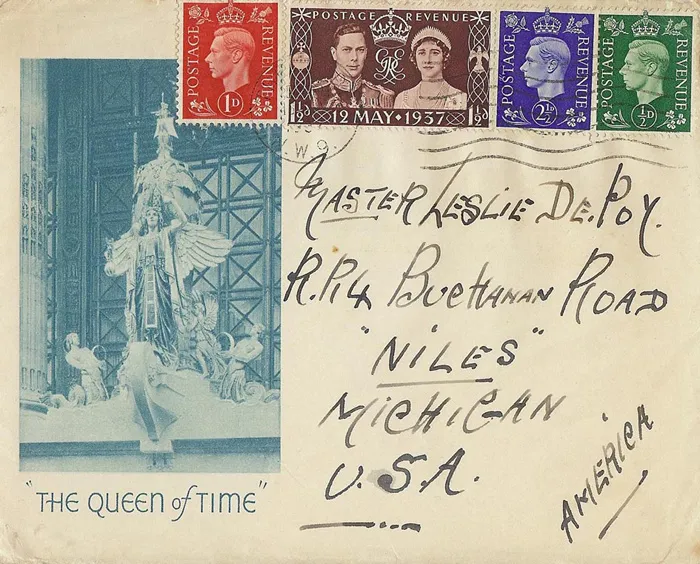 POSTAGE REVENUE 1D
POSTAGE REVENUE
1½D 12 MAY·1937 1½D
POSTAGE REVENUE 2½D
POSTAGE REVENUE ½D
W 9
MASTER LESLIE DE. POY.
Buchanan Road
"NILES"
MICHIGAN
U.S.A.
AMERICA
"THE QUEEN of TIME"